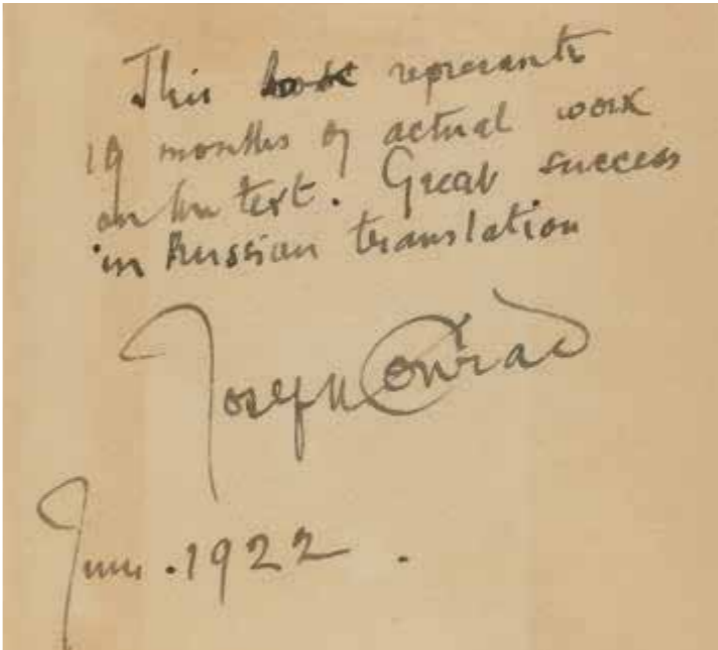 This book represents
19 months of actual work
on the text. Great success
in Russian translation
Joseph Conrad
June. 1922.